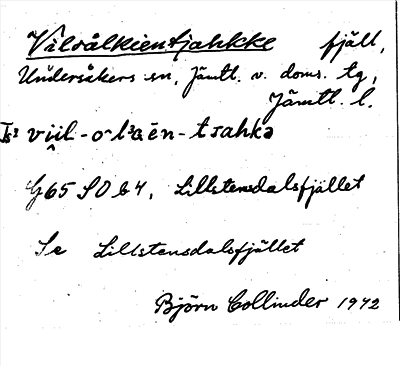 Vålsålkientjahkke fjäll,
Undersåkers sn, Jämtl. v. doms. tg,
Jämtl. l.
vi̬il-o-lɜaēn-tsahkə
G65 SO b4, Lillstensdalsfjället
Se Lillstensdalsfjället
Björn Collinder 1942